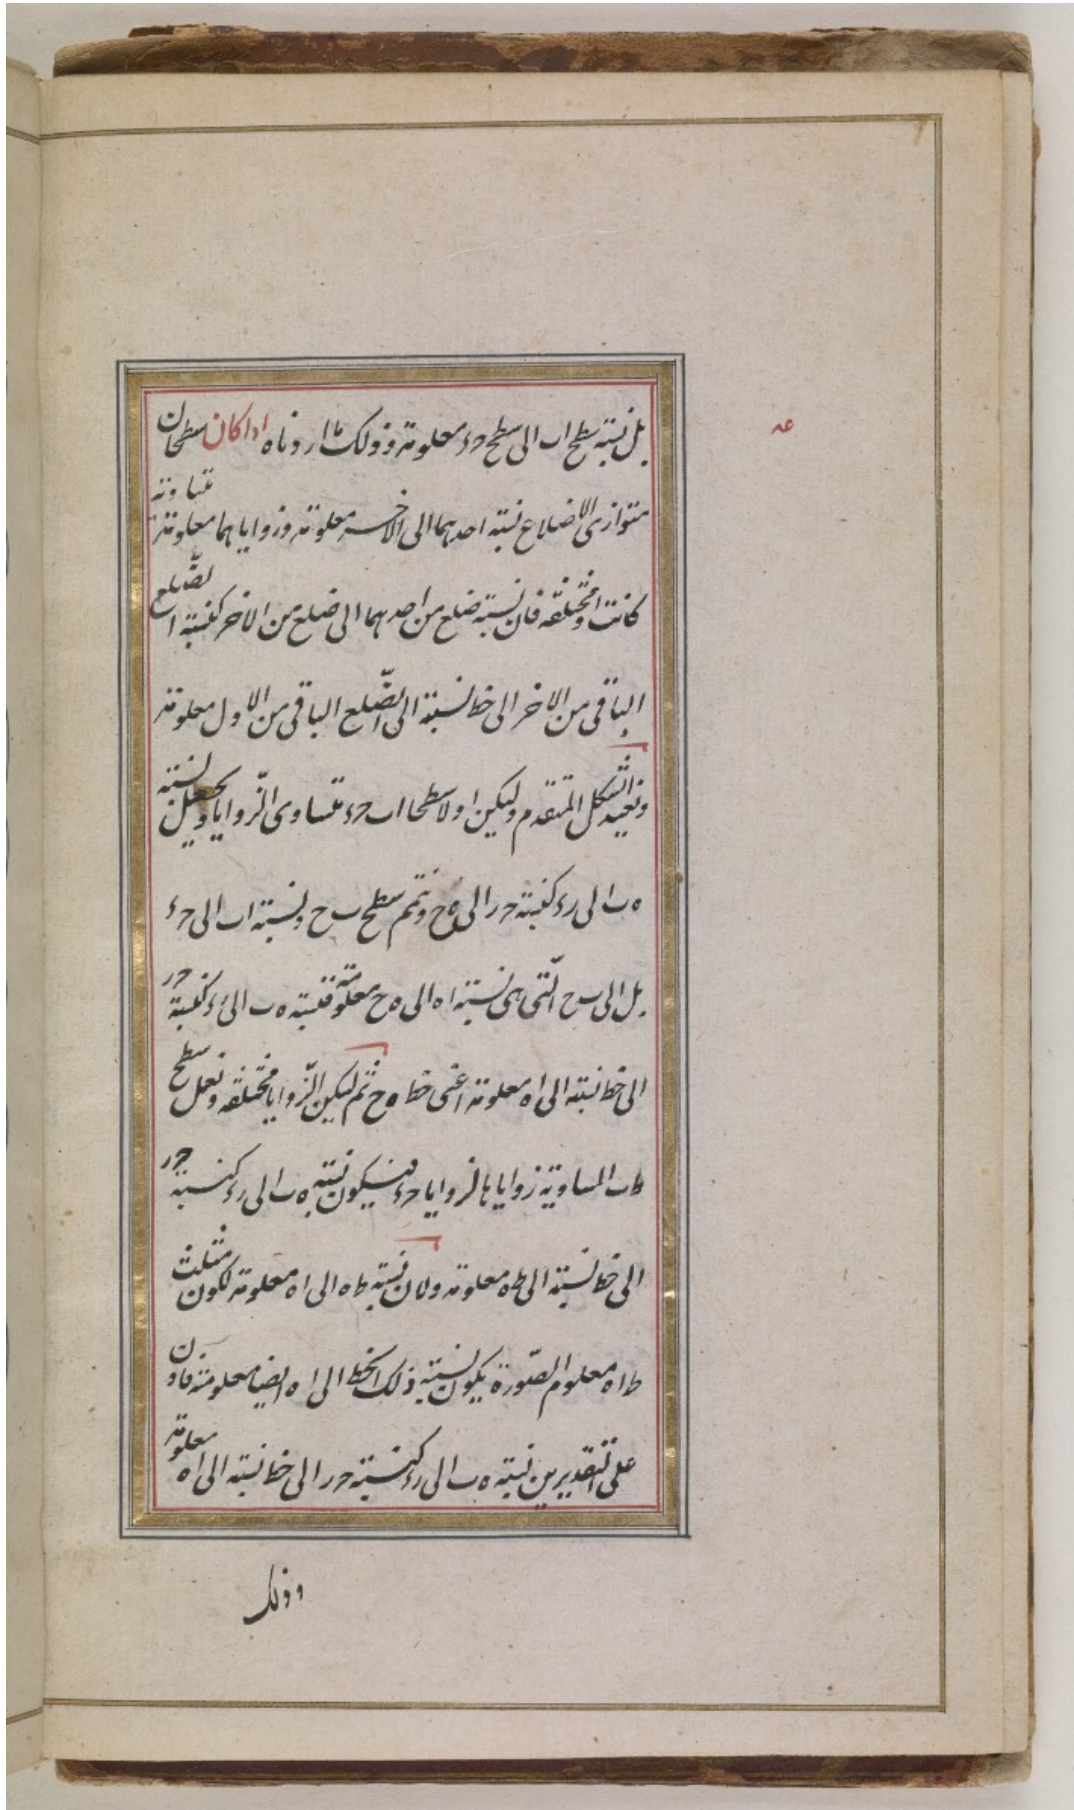 بل نسبة سطح اب الى سطح حء معلومة وذلك ما اردناه اذا كان سطحان
عه
متوازى الاضلاع نسبة احدهما الى الاخر معلومة وزواياهما معلومة متساوية
كانت او مختلفة فان نسبة ضلع من احدهما الى ضلع من الاخر كنسبة الضلع
الباقى من الاخر الى خط نسبته الى الضّلع الباقى من الاول معلومة
ونعيد الشكل المتقدم وليكن اولا سطحا اب حء متساوى الزّوايا ونجعل نسبة
ه ب الى رء كنسبة حر الى ه ح ونتمم سطح ب ح ونسبة اب الى حء
بل الى ب ح الّتى هى نسبة اه الى ه ح معلومة فنسبة ه ب الى رء كنسبة حر
الى خط نسبته الى اه معلومة اعنى خط ه ح ثم ليكن الزّوايا مختلفة ونعمل سطح
ط ب المساوية زواياها لزوايا حء فيكون نسبة ه ب الى رء كنسبة حر
الى خط نسبته الى طه معلومة ولان نسبة طه الى اه معلومة لكون مثلث
طاه معلوم الصّورة يكون نسبة ذلك الخط الى اه ايضا معلومة فاذن
على التقديرين نسبة ه ب الى رء كنسبة حر الى خط نسبته الى اه معلومة
وذلك